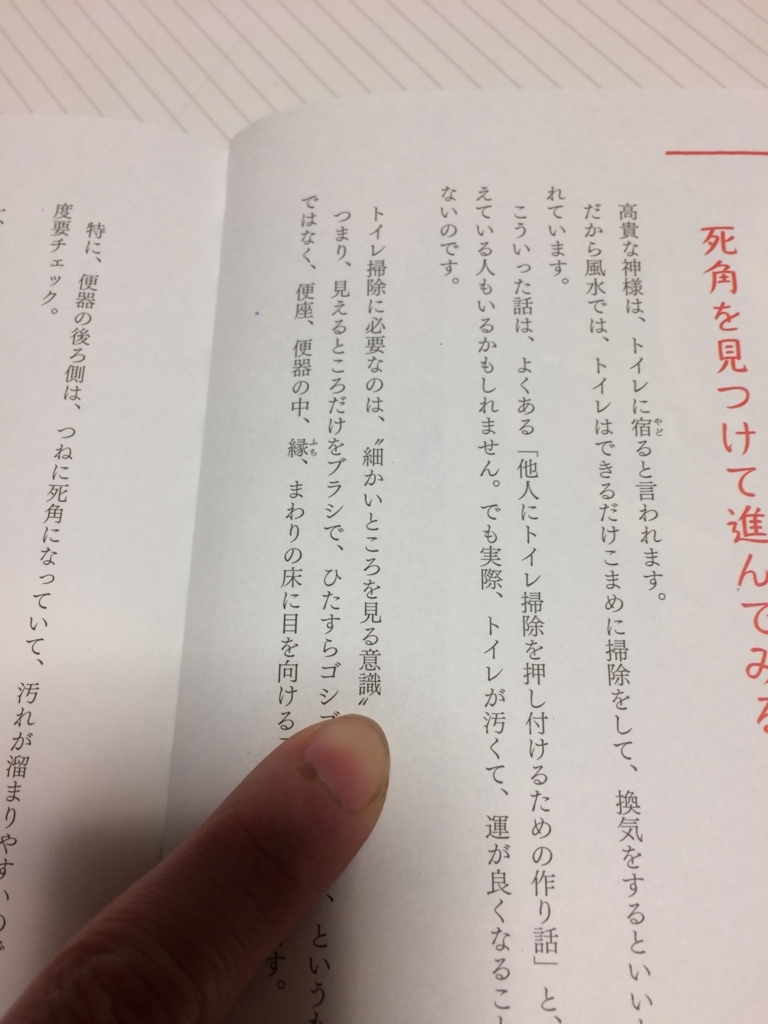 死角を見つけて進んでみる
高貴な神様は、トイレに宿ると言われます。
やど
だから風水では、トイレはできるだけこまめに掃除をして、換気をするといい
れています。
こういった話は、よくある「他人にトイレ掃除を押し付けるための作り話」と、
えている人もいるかもしれません。でも実際、トイレが汚くて、運が良くなるこ
ないのです。
トイレ掃除に必要なのは、〝細かいところを見る意識〟
つまり、見えるところだけをブラシで、ひたすらゴシ
、というも
ではなく、便座、便器の中、縁、まわりの床に目を向ける
ふち
す。
特に、便器の後ろ側は、つねに死角になっていて、汚れが溜まりやすいので
度要チェック。